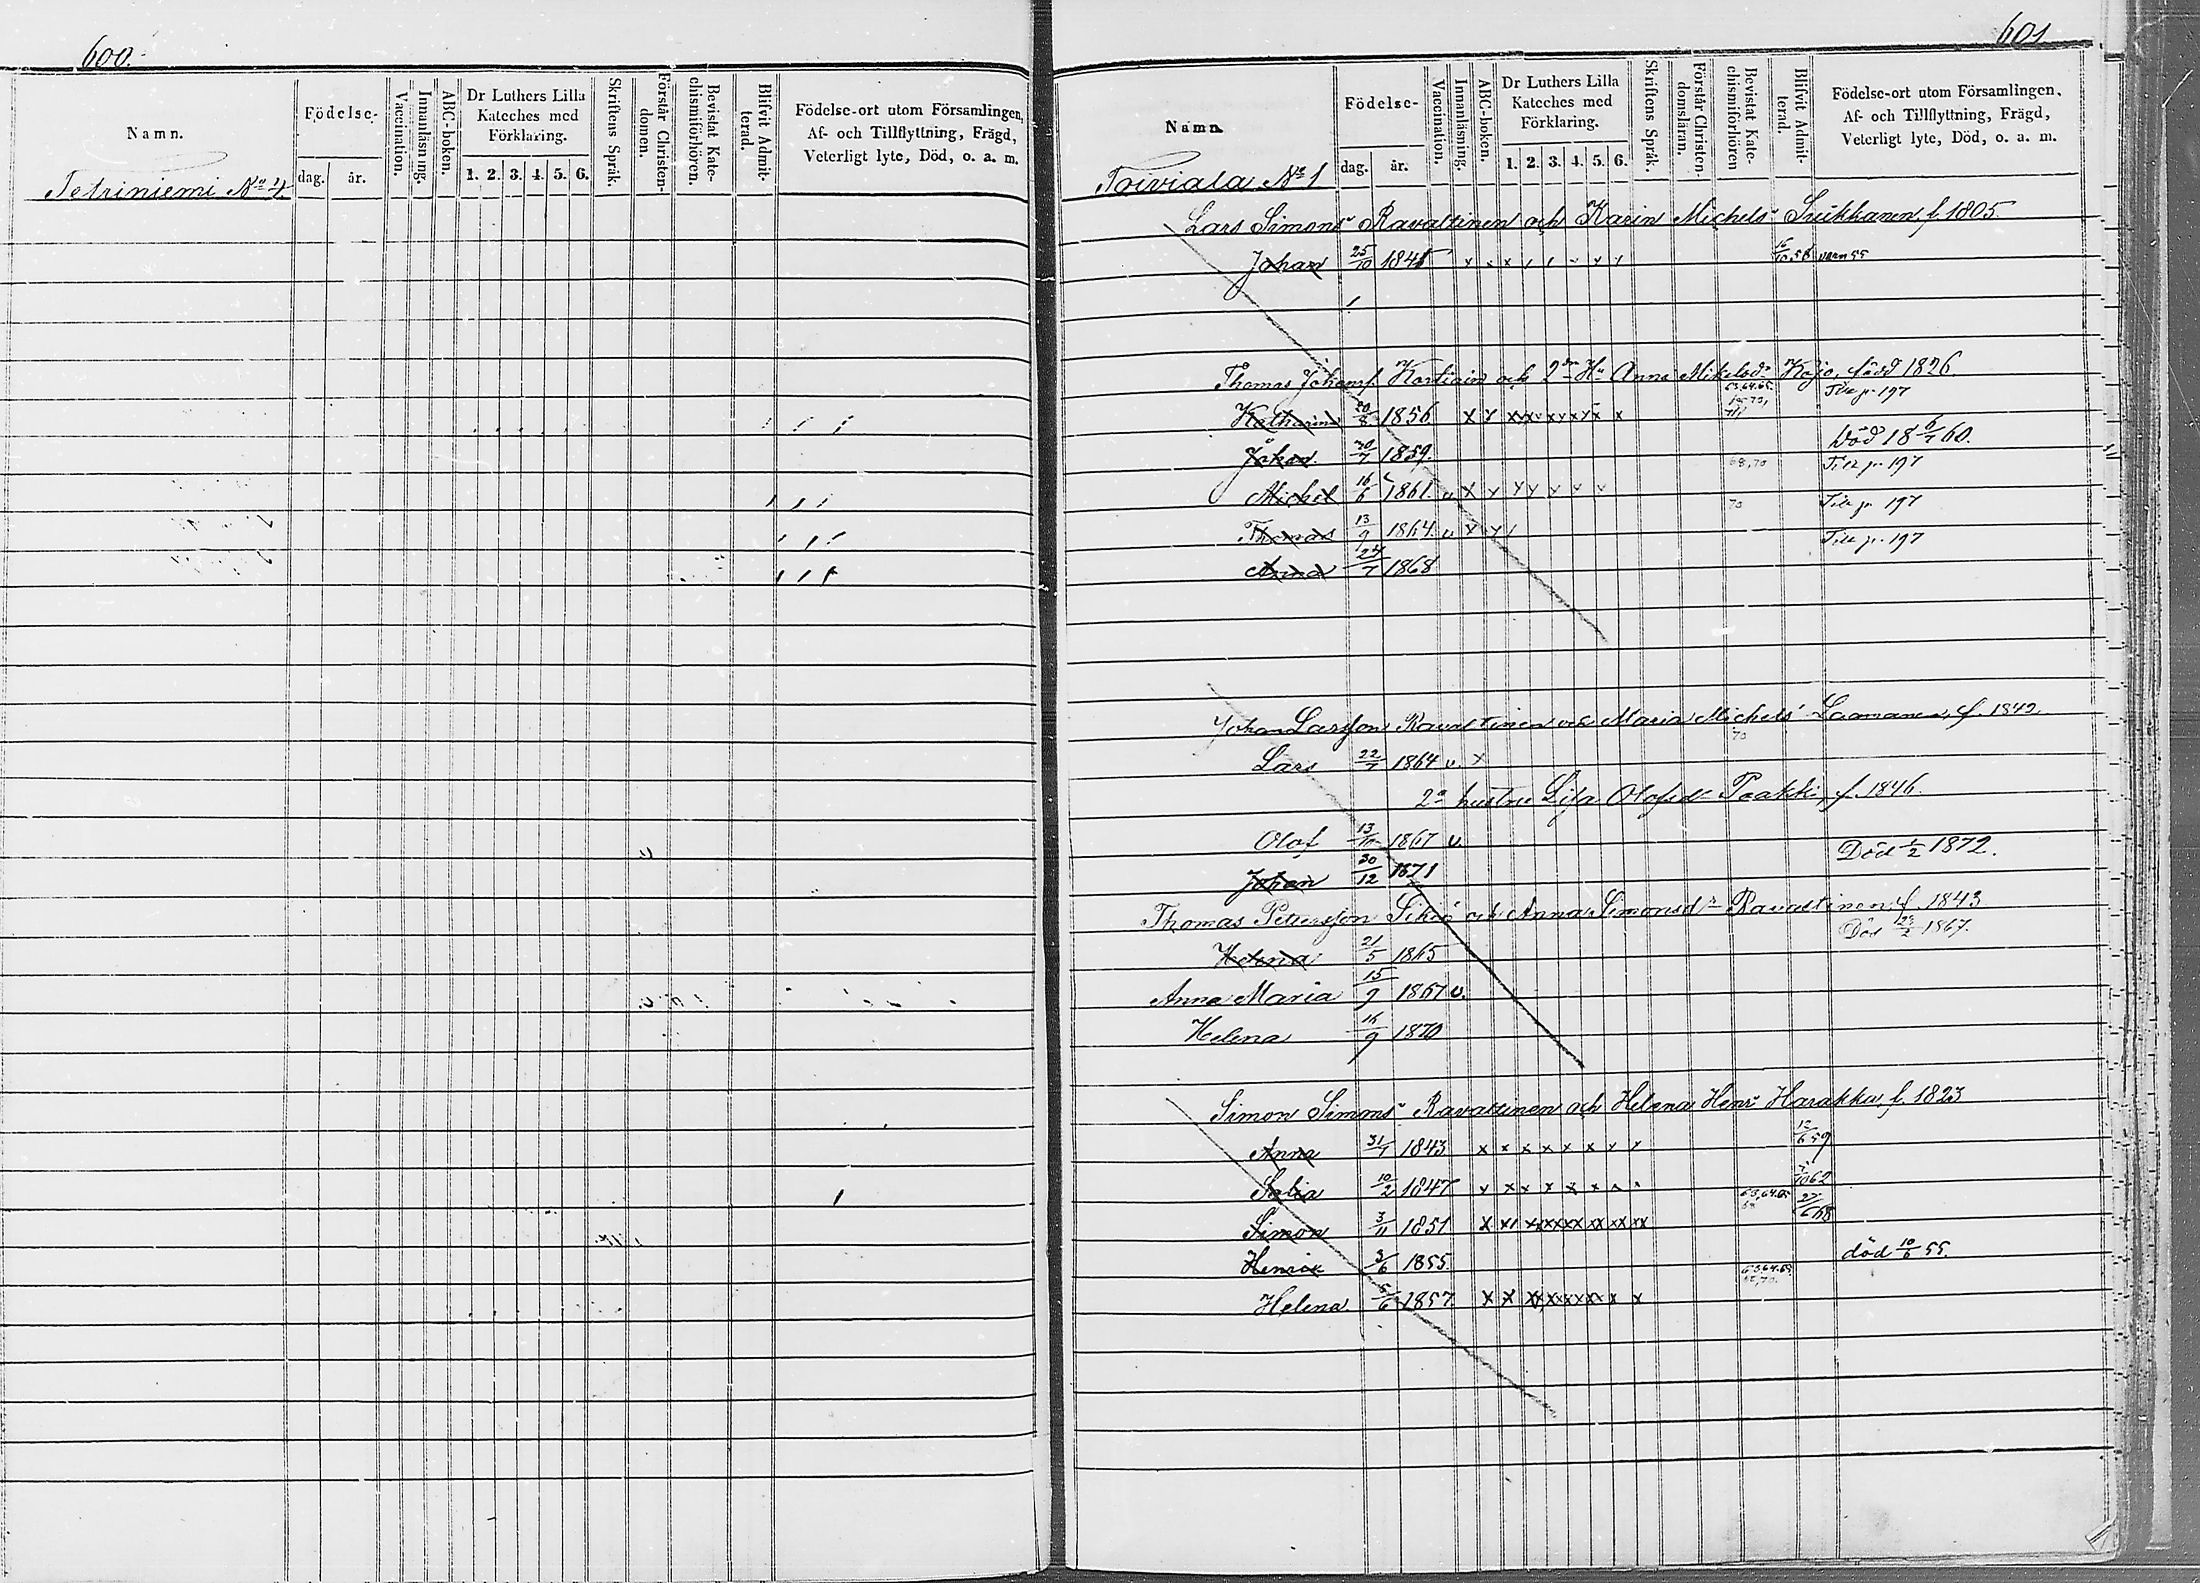 600.
Namn.
Födelse-
dag.
år.
Vaccination.
Innanläsning.
ABC-boken.
Dr Luthers Lilla
Kateches med
Förklaring.
1. 2. 3. 4. 5. 6.
Skriftens Språk.
Förstår Christen-
domen.
Bevistat Kate-
chismiförhören.
Blifvit Admit-
terad.
Födelse-ort utom Församlingen,
Af- och Tillflyttning, Frägd,
Veterligt lyte, Död, o. a. m.
Tetriniemi No 4.
601
Namn.
Födelse-
dag.
år.
Vaccination.
Innanläsning.
ABC-boken.
Dr Luthers Lilla
Kateches med
Förklaring.
1. 2. 3. 4. 5. 6.
Skriftens Språk.
Förstår Christen-
domsläran.
Bevistat Kate-
chismiförhören
Blifvit Admit-
terad.
Födelse-ort utom Församlingen,
Af- och Tillflyttning, Frägd,
Veterligt lyte, Död, o. a. m.
Toiviala No 1
Lars Simons Ravattinen och Karin Michels Suikkanen f. 1805.
Johan 25/10 1841 x x x x x x x
Thomas Johans. och 2dra Hu Anna Mikelsdr Kojo, född 1826.
Katharina 20/8 1856. x x x x x x x x
Död 18 6/7 60.
Johan 30/7 1859.
Michel 16/6 1861. v x x x x x x x
Thomas 13/9 1864. v x x
Anna 24/7 1868
Johan Larsson Ravattinen och Maria Michels Laamanen, f. 1842
70
Lars 22/7 1864 v. x
2a hustru Lisa Olofsd. Paakki, f. 1846.
Olof 13/10 1867 v.
Död 1/2 1872.
Johan 30/12 1871
Thomas Petersson och Anna Simonsdr Ravattinen f. 1843
Död 1867.
Helena 21/5 1865
Anna Maria 15/9 1867 v.
Helena 16/9 1870
Simon Simons Ravattinen och Helena Henr. Harakka f. 1823
Anna 31/7 1843 x x x x x x x x 12/6 59
Sofia 10/2 1847 x x x x x x x x
Simon 3/11 1851 27/6 68
Henric 3/6 1855. död 10/6 55.
Helena. 5/6 1857.